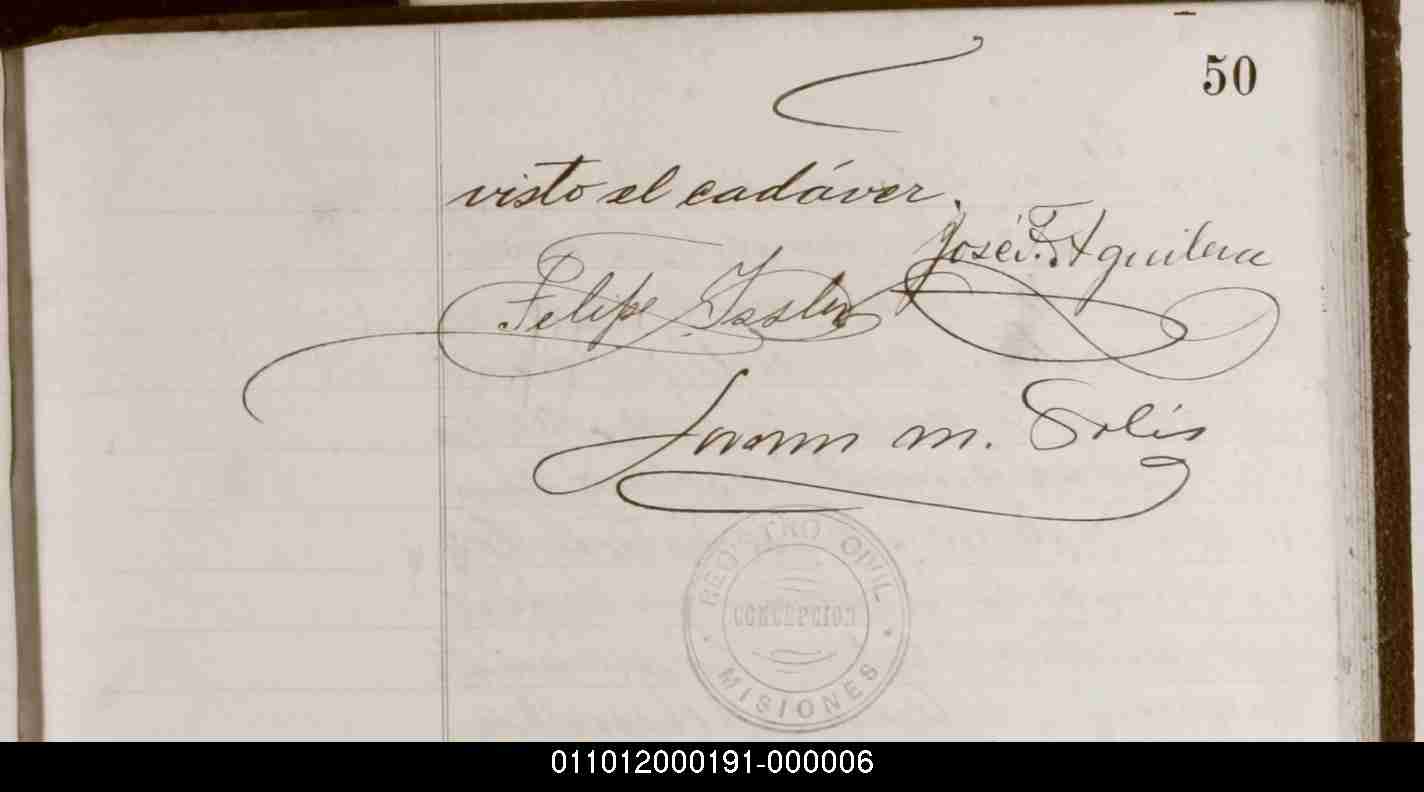 50
visto el cadáver.
José F. Aguilera
Felipe
Juan M. Solís
REGISTRO CIVIL
CONCEPCION
MISIONES
011012000191-000006